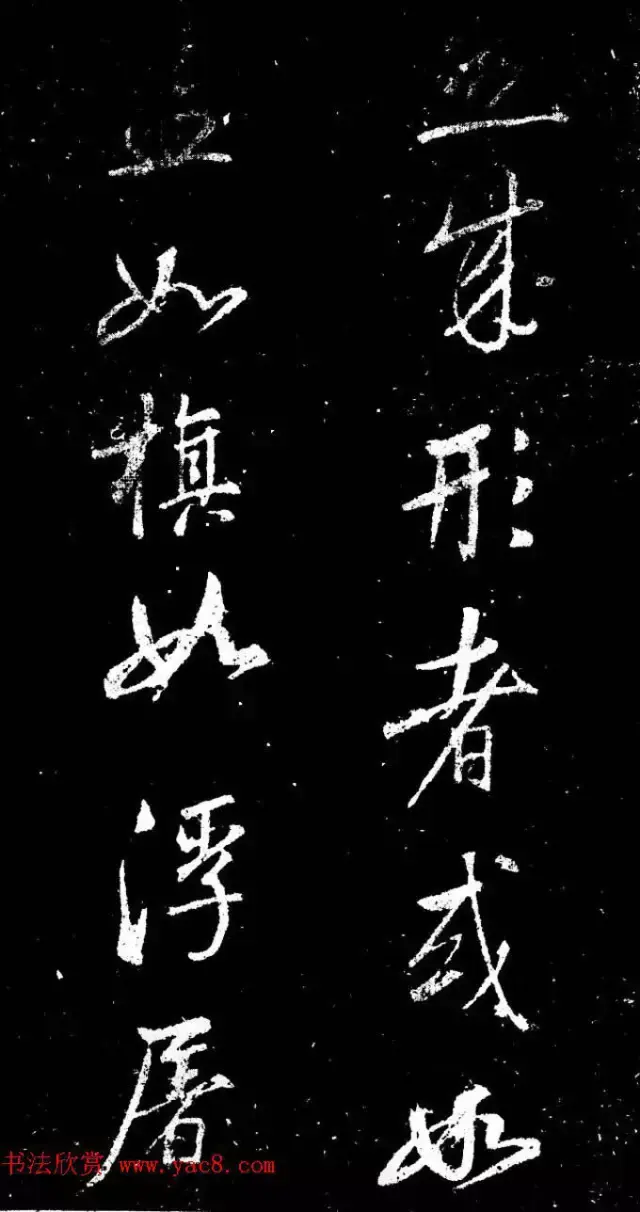 成形者或如
立如槙如浮屠
书法欣赏 www.yac8.com